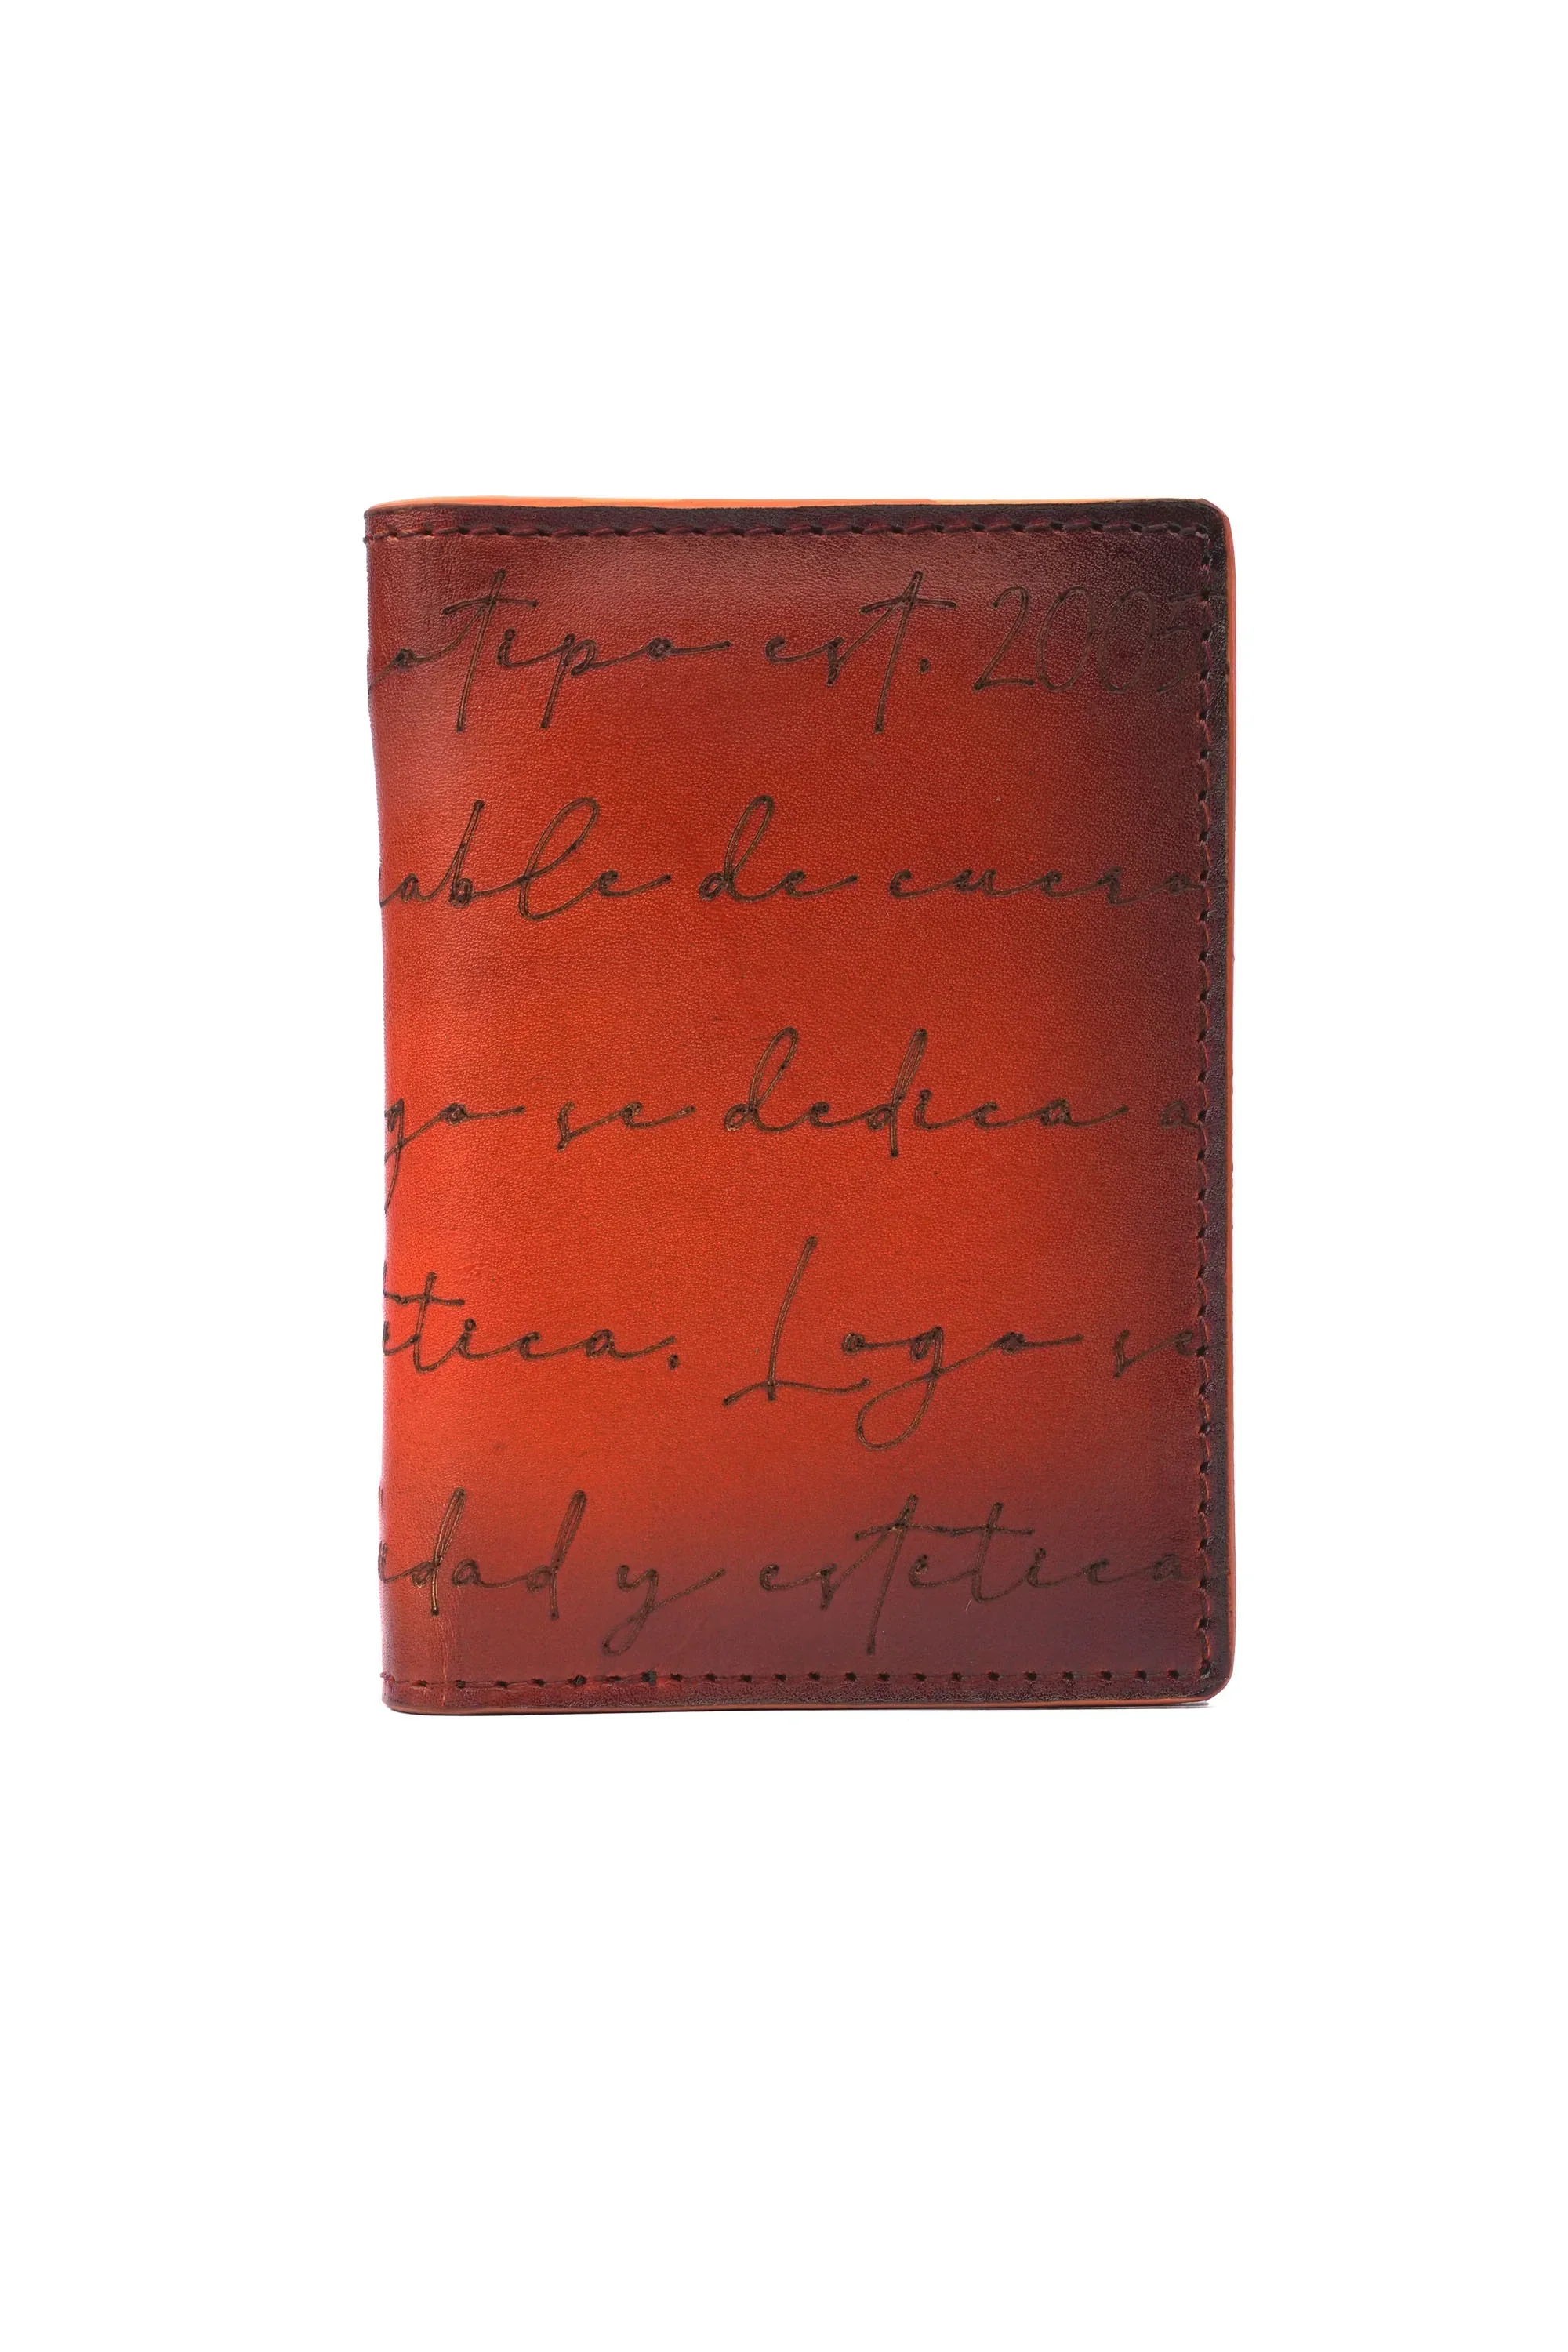 otipo est. 2005
able de cuero
go se dedica a
tica. Logo se
idad y estetica